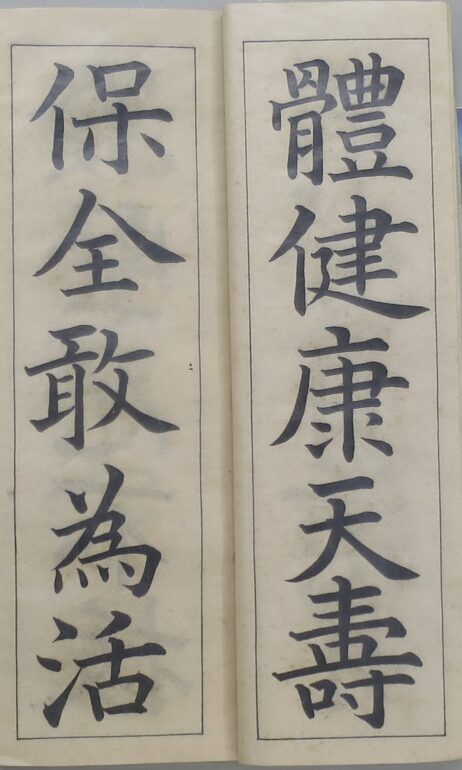 體健康天壽
保全敢為活